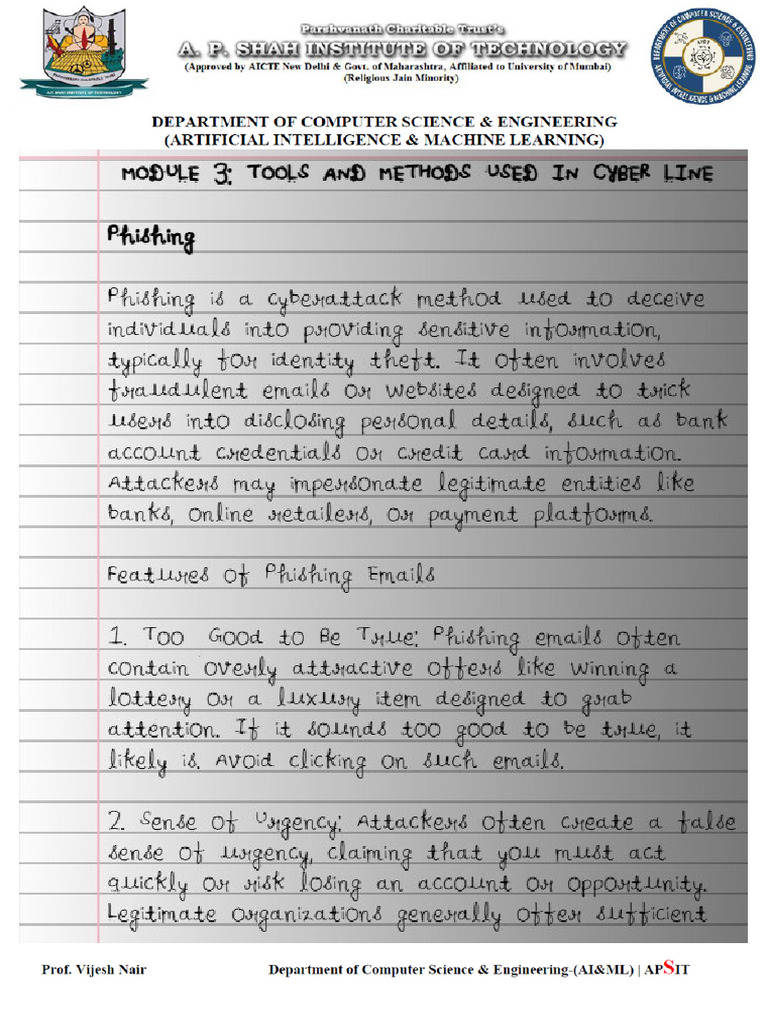 Parshvanath Charitable Trust's
A. P. SHAH INSTITUTE OF TECHNOLOGY
(Approved by AICTE New Delhi & Govt. of Maharashtra, Affiliated to University of Mumbai)
(Religious Jain Minority)
A.P. SHAH INSTITUTE OF TECHNOLOGY
DEPARTMENT OF COMPUTER SCIENCE & ENGINEERING
ARTIFICIAL INTELLIGENCE & MACHINE LEARNING
DEPARTMENT OF COMPUTER SCIENCE & ENGINEERING
(ARTIFICIAL INTELLIGENCE & MACHINE LEARNING)
MODULE 3: TOOLS AND METHODS USED IN CYBER LINE
Phishing
Phishing is a cyberattack method used to deceive
individuals into providing sensitive information,
typically for identity theft. It often involves
fraudulent emails or websites designed to trick
users into disclosing personal details, such as bank
account credentials or credit card information.
Attackers may impersonate legitimate entities like
banks, online retailers, or payment platforms.
Features of Phishing Emails
1. Too Good to Be True: Phishing emails often
contain overly attractive offers like winning a
lottery or a luxury item designed to grab
attention. If it sounds too good to be true, it
likely is. Avoid clicking on such emails.
2. Sense of Urgency: Attackers often create a false
sense of urgency, claiming that you must act
quickly or risk losing an account or opportunity.
Legitimate organizations generally offer sufficient
Prof. Vijesh Nair Department of Computer Science & Engineering-(AI&ML) | APSIT